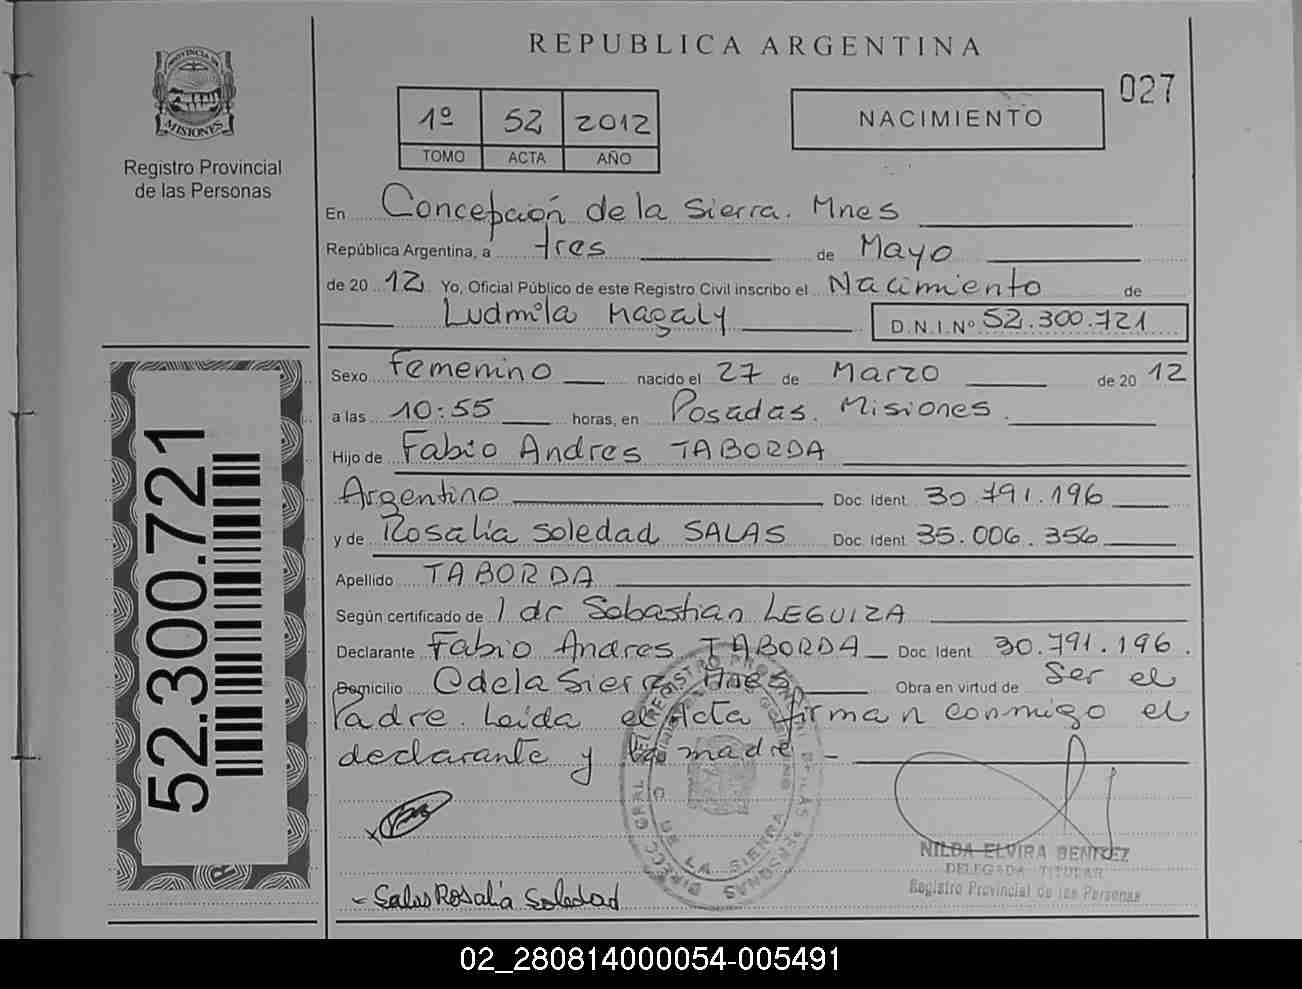 REPUBLICA ARGENTINA
027
PROVINCIA DE
MISIONES
Registro Provincial
de las Personas
1º 52 2012
TOMO ACTA AÑO
NACIMIENTO
En Concepción de la Sierra. Mnes
República Argentina, a tres de Mayo
de 2012 Yo, Oficial Público de este Registro Civil inscribo el Nacimiento de
Ludmila Magaly D.N.I.Nº 52.300.721
Sexo Femenino nacido el 27 de Marzo de 2012
a las 10:55 horas, en Posadas. Misiones.
Hijo de Fabio Andres TABORDA
Argentino Doc. Ident. 30.791.196
y de Rosalía Soledad SALAS Doc. Ident. 35.006.356
Apellido TABORDA
Según certificado de l dr Sebastian LEGUIZA
Declarante Fabio Andres TABORDA Doc. Ident. 30.791.196.
Domicilio C de la Sierra Mnes Obra en virtud de Ser el
Padre. Leída el Acta firman conmigo el
declarante y la madre -
52.300.721
NILDA ELVIRA BENITEZ
DELEGADA TITULAR
Registro Provincial de las Personas
- Salas Rosalía Soledad
C. DE LA SIERRA
02_280814000054-005491